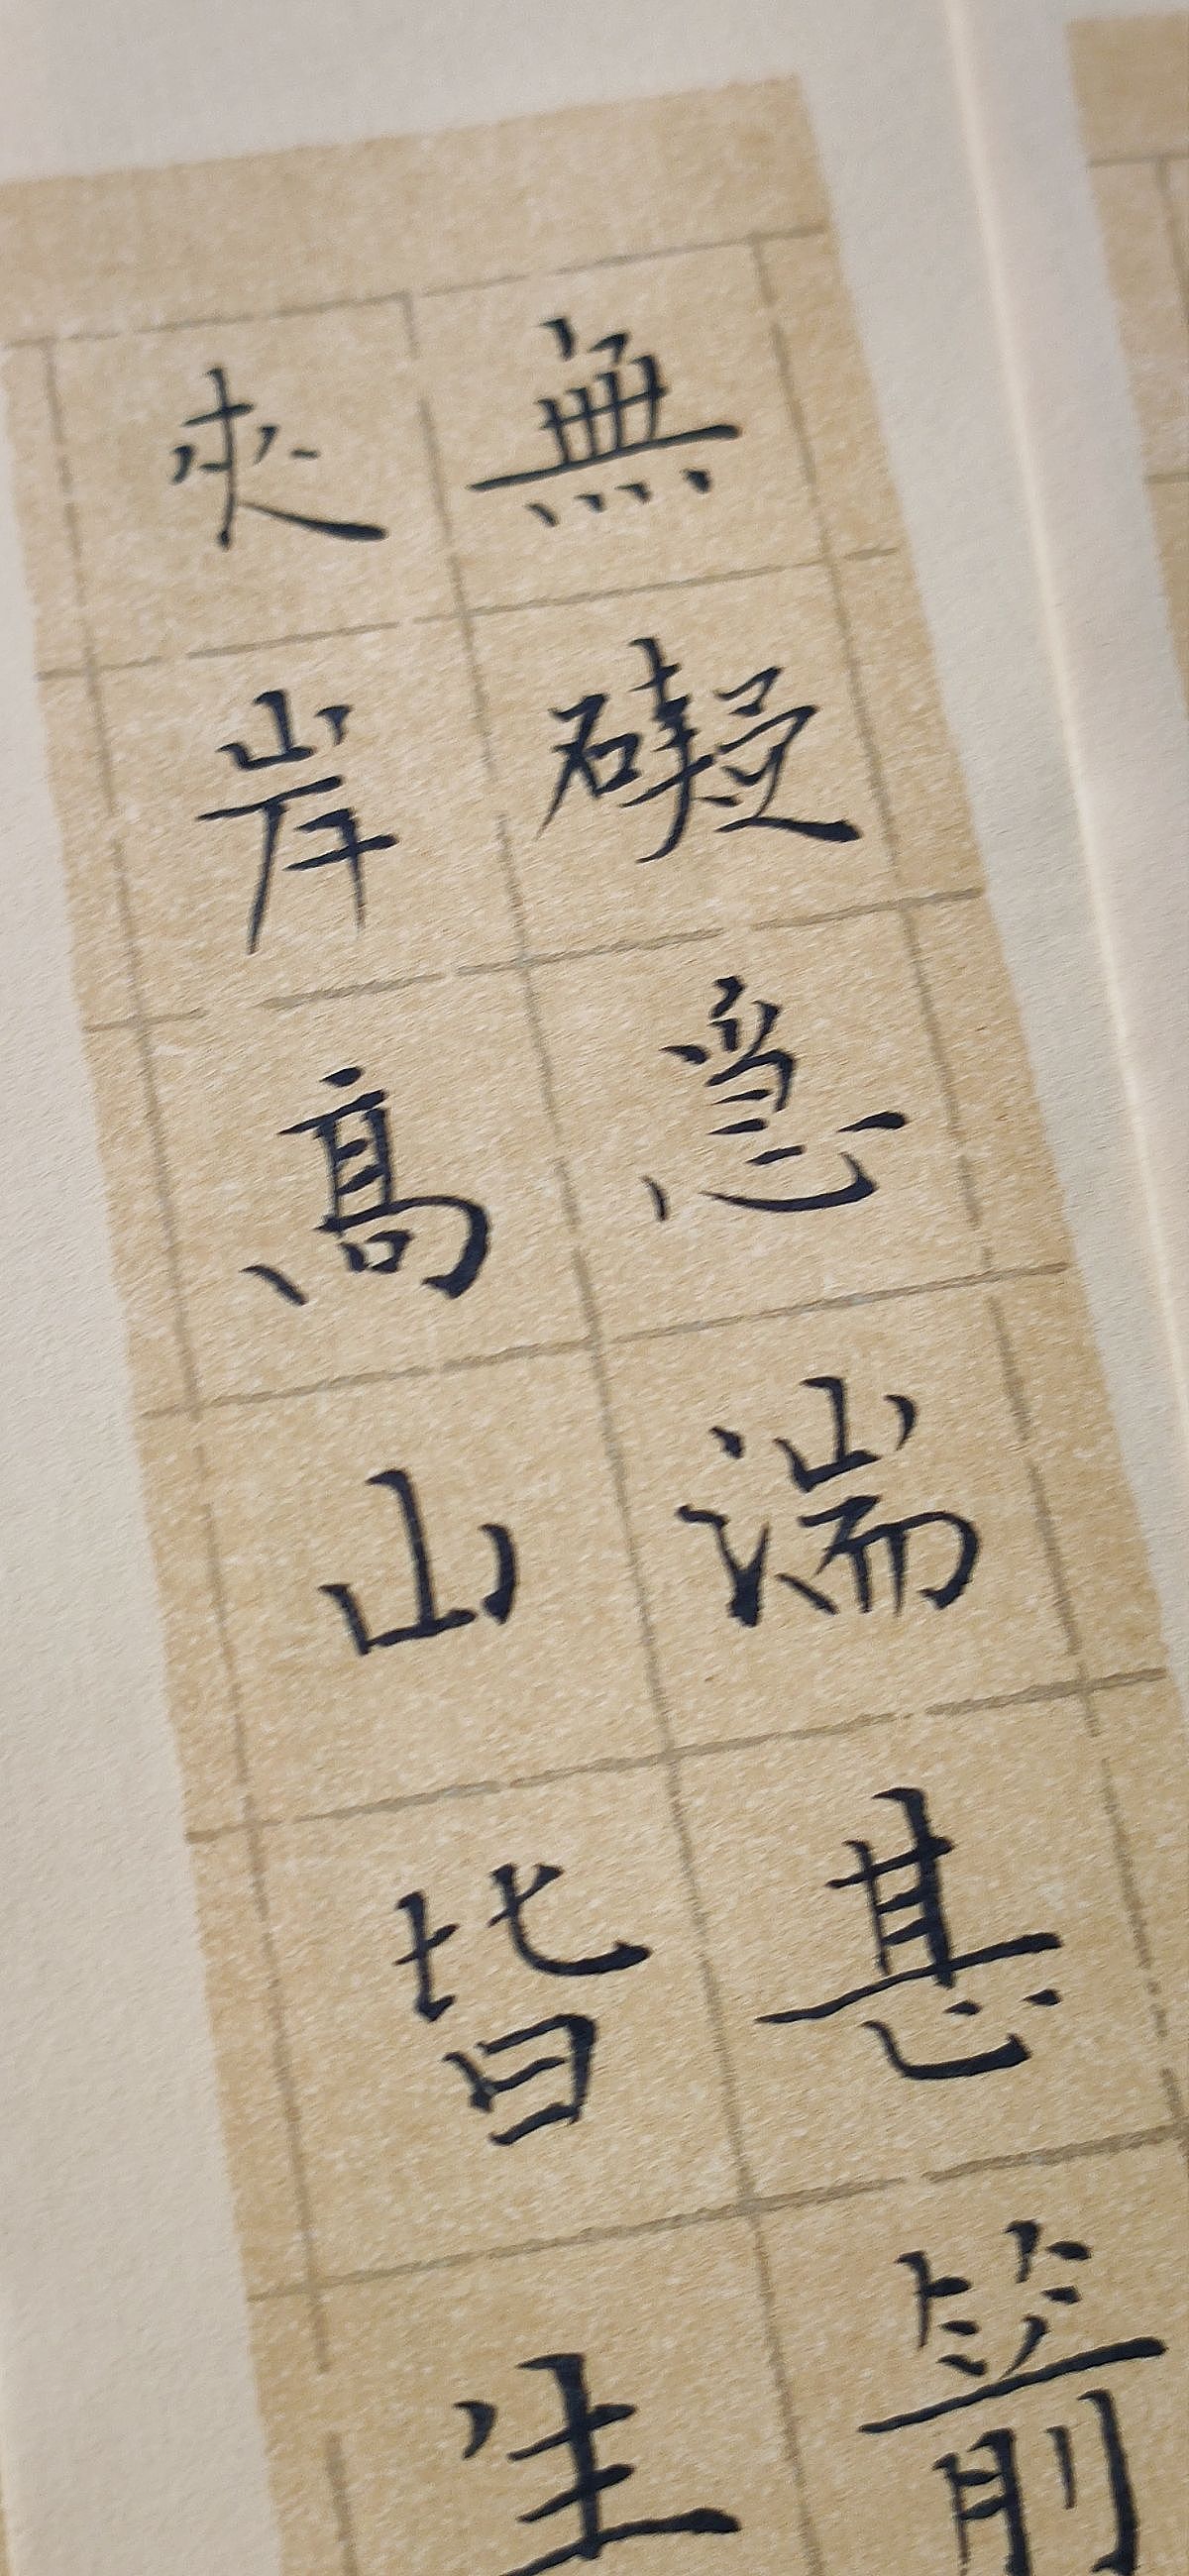 無礙急湍甚箭
夾岸高山皆生